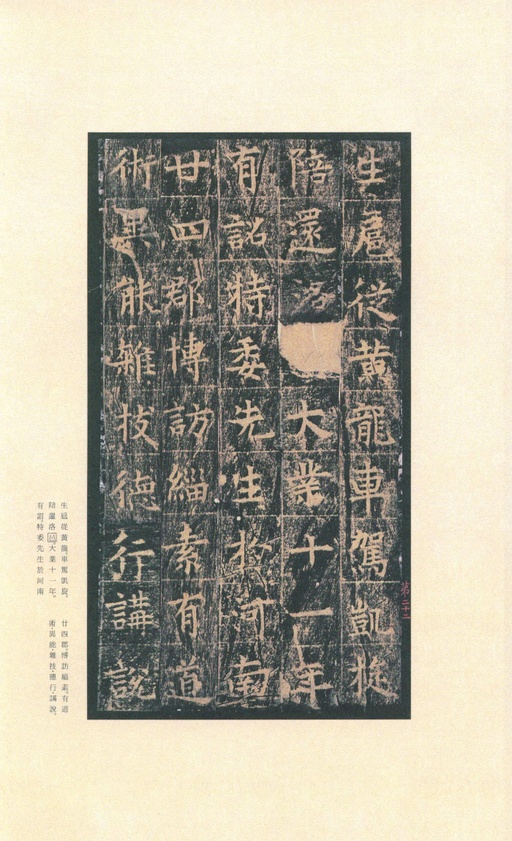 生扈從黃龍車駕凱旋
陪還洛大業十一年
有詔特委先生於河南
廿四郡博訪緇素有道
術異能雜技德行講說
第二十二
生扈從黃龍車駕凱旋。
陪還洛邑。大業十一年。
有詔特委先生於河南
廿四郡博訪緇素有道
術異能雜技德行講說。